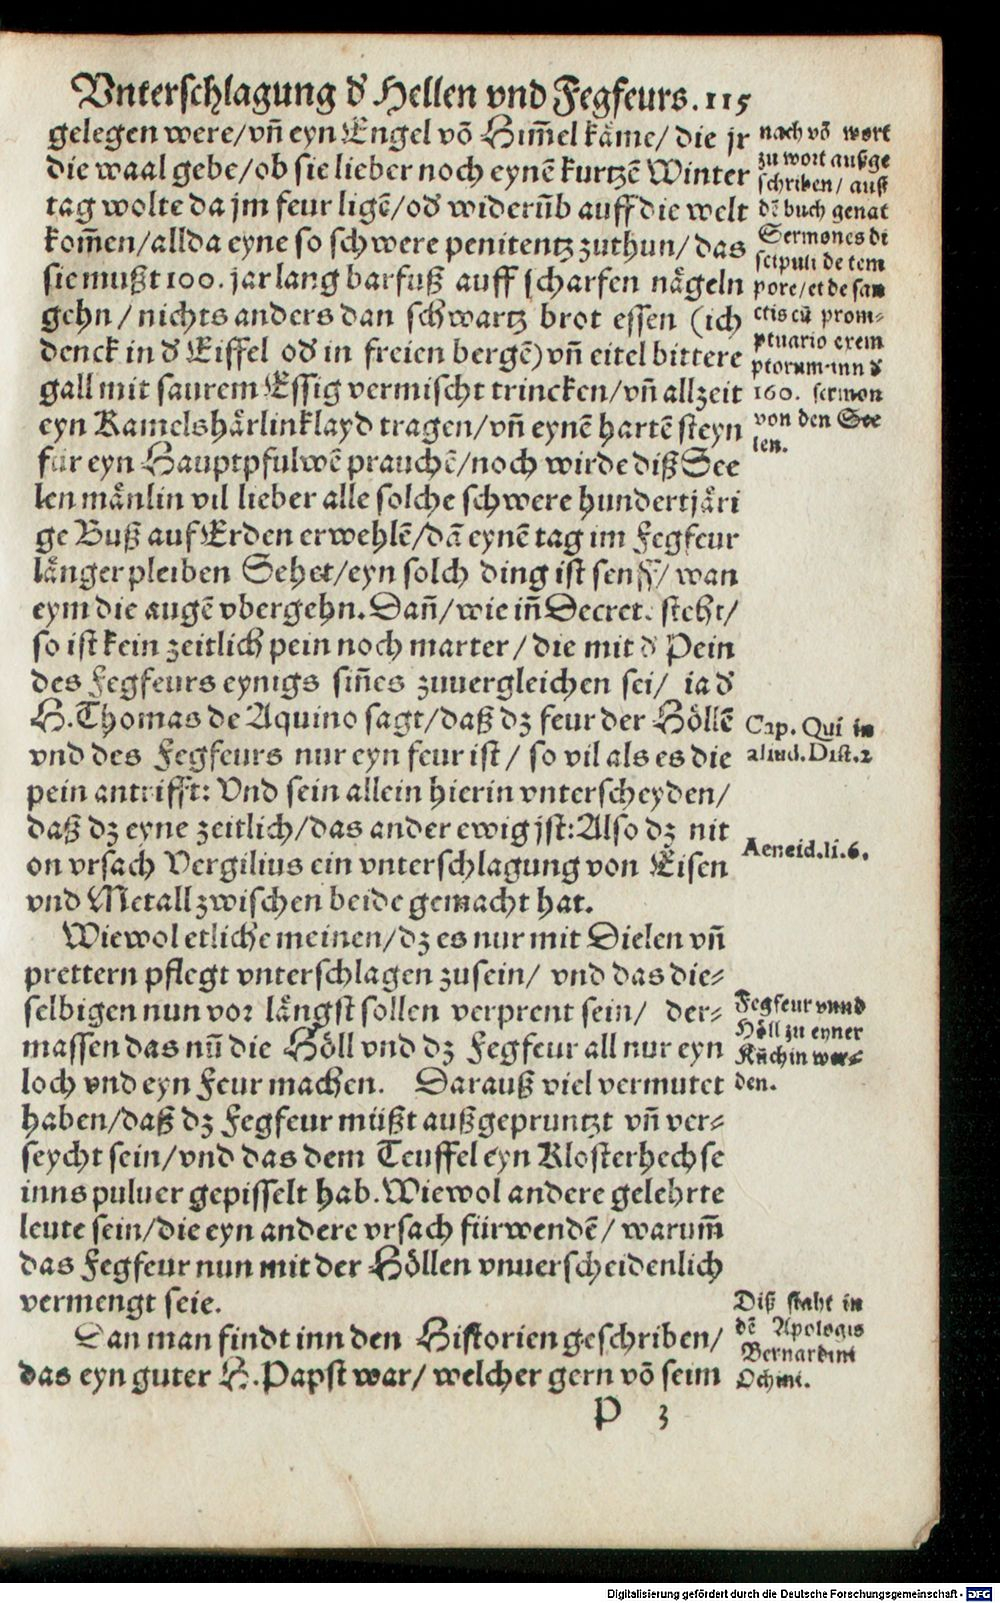 Vnterschlagung ď Hellen vnd Fegfeurs. 115
gelegen were/vñ eyn Engel võ Him̃el käme/ die jr
die waal gebe/ob sie lieber noch eynẽ kurtzẽ Winter
tag wolte da jm feur ligẽ/oď widerũb auff die welt
kom̃en/allda eyne so schwere penitentz zuthun/ das
sie mußt 100. jar lang barfuß auff scharfen nägeln
gehn / nichts anders dan schwartz brot essen (ich
denck in ď Eiffel oď in freien bergẽ) vñ eitel bittere
gall mit saurem Essig vermischt trincken/vñ allzeit
eyn Kamelshärlinklayd tragen/vñ eynẽ hartẽ steyn
für eyn Hauptpfulwẽ prauchẽ/noch wirde diß See
len mänlin vil lieber alle solche schwere hundertjäri
ge Buß auf Erden erwehlẽ/dã eynẽ tag im Fegfeur
länger pleiben Sehet/eyn solch ding ist senff/ wan
eym die augẽ vbergehn. Dañ/wie iñ Decret. steht/
so ist kein zeitlich pein noch marter / die mit ď Pein
des Fegfeurs eynigs siñes zuuergleichen sei/ ia ď
H. Thomas de Aquino sagt/daß dz feur der Höllẽ
vnd des Fegfeurs nur eyn feur ist / so vil als es die
pein antrifft: Vnd sein allein hierin vnterscheyden/
daß dz eyne zeitlich/das ander ewig jst: Also dz nit
on vrsach Vergilius ein vnterschlagung von Eisen
vnd Metall zwischen beide gemacht hat.
Wiewol etliche meinen/dz es nur mit Dielen vñ
prettern pflegt vnterschlagen zusein/ vnd das die-
selbigen nun vor längst sollen verprent sein/ der-
massen das nũ die Höll vnd dz Fegfeur all nur eyn
loch vnd eyn Feur machen. Darauß viel vermutet
haben/daß dz Fegfeur müßt außgepruntzt vñ ver-
seycht sein/vnd das dem Teuffel eyn Klosterhechse
inns puluer gepisselt hab. Wiewol andere gelehrte
leute sein/die eyn andere vrsach fürwendẽ/ warum̃
das Fegfeur nun mit der Höllen vnuerscheidenlich
vermengt seie.
Dan man findt inn den Historien geschriben/
das eyn guter H. Papst war/ welcher gern võ seim
P 3
nach võ wort
zu wort außge
schriben/ auß
dẽ buch genãt
Sermones di
scipuli de tem
pore/et de san
ctis cũ prom-
ptuario exem
plorum inn ď
160. sermon
von den See
len.
Cap. Qui in
aliud. Dist. 2
Aeneid. li. 6.
Fegfeur vnnd
Höll zu eyner
Kuchin wor-
den.
Diß staht in
dẽ Apologis
Bernardini
Ochini.
Digitalisierung gefördert durch die Deutsche Forschungsgemeinschaft - DFG